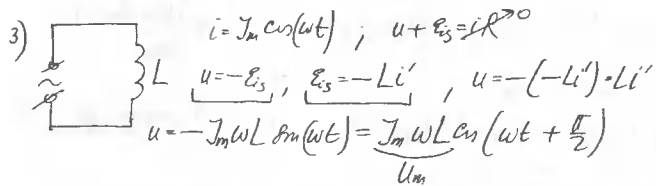 3) i = I_m cos(ωt) ; u + ε_is = iR → 0
L u = -ε_is , ε_is = -Li' , u = -(-Li') = Li'
u = -I_m ωL sin(ωt) = I_m ωL cos(ωt + π/2)
U_m